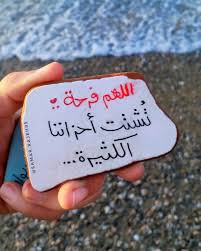 اللهم فرحة
تُشتت أحزاننا
الكثيرة...